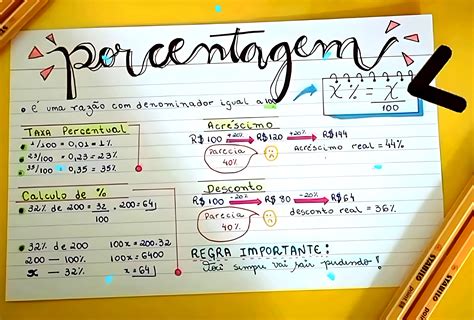 porcentagem
• é uma razão com denominador igual a 100
x% = x
100
TAXA Percentual
• 1/100 = 0,01 = 1%
• 23/100 = 0,23 = 23%
• 35/100 = 0,35 = 35%
Calculo de %
• 32% de 200 = 32/100 . 200 = 64
• 32% de 200
200 — 100%
x — 32%
100x = 200.32
100x = 6400
x = 64
Acréscimo
R$ 100 +20% R$ 120 +20% R$ 144
Parecia
40%
acréscimo real = 44%
Desconto
R$ 100 -20% R$ 80 -20% R$ 64
Parecia
40%
desconto real = 36%
REGRA IMPORTANTE:
Você sempre vai sair perdendo!
STABILO
STABILO